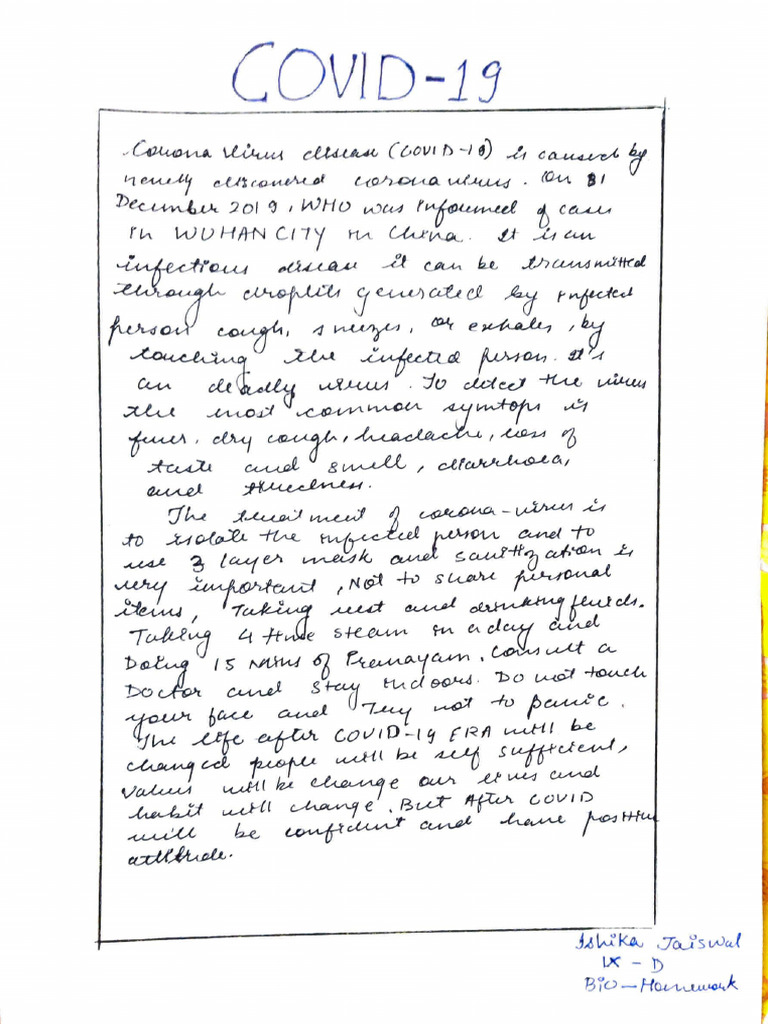 COVID-19
Corona Virus disease (COVID-19) is caused by
newly discovered corona virus. On 31
December 2019, WHO was informed of cases
in WUHAN CITY in China. It is an
infectious disease it can be transmitted
through droplits generated by infected
person cough, sneezes, or exhales, by
touching the infected person. It's
an deadly virus. To detect the virus
the most common symtops is
fever, dry cough, headache, loss of
taste and smell, diarrhoea,
and tiredness.
The treatment of corona-virus is
to isolate the infected person and to
use 3 layer mask and sanitization is
very important, Not to share personal
items, Taking rest and drinking fluids.
Taking 4 time steam in a day and
Doing 15 mins of Pranayam. Consult a
Doctor and stay indoors. Do not touch
your face and Try not to panic.
The life after COVID-19 ERA will be
changed people will be self sufficient,
values will be change our lives and
habit will change. But After COVID
will be confident and have positive
attitude.
Ishika Jaiswal
IX - D
BIO - Homework